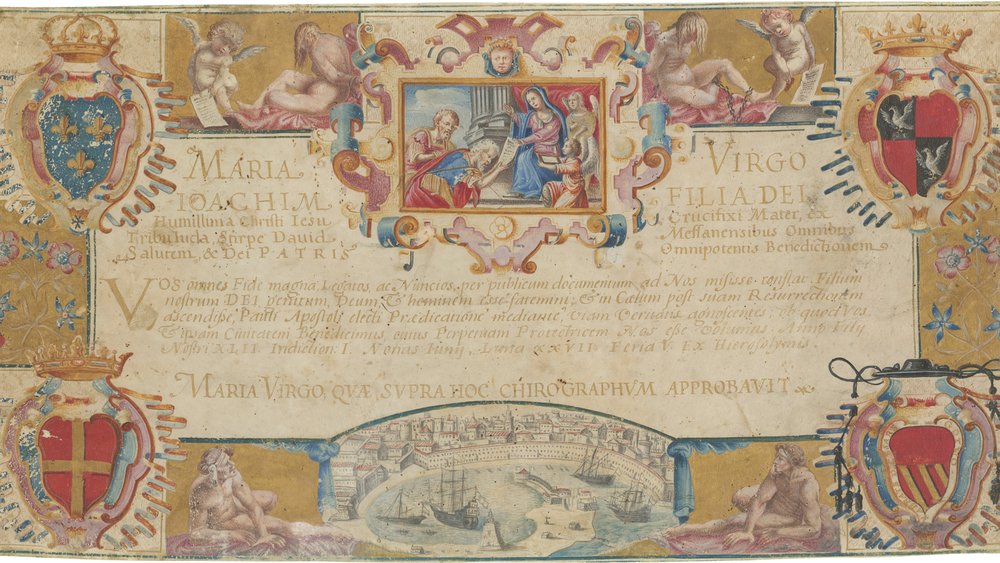 MARIA VIRGO
IOACHIM FILIA DEI
Humillima Christi Iesu Crucifixi Mater, ex
Tribu Iuda, Stirpe David Messanensibus Omnibus
Salutem, & Dei PATRIS Omnipotentis Benedictionem
VOS omnes Fide magna Legatos, ac Nuncios, per publicum documentum ad Nos misisse constat. Filium
nostrum DEI genitum, Deum, & hominem esse fatemini, & in Cœlum post suam Resurrectionem
ascendisse, Pauli Apostoli electi Prædicatione mediante viam Veritatis agnoscentes; ob quod Vos
& ipsam Civitatem Benedicimus, cuius Perpetuam Protectricem Nos esse Volumus. Anno Filij
Nostri XLII Indiction. I. Nonas Iunij, Luna XXVII Feria V. Ex Hierosolymis.
MARIA VIRGO, QVÆ SVPRA HOC CHIROGRAPHVM APPROBAVIT